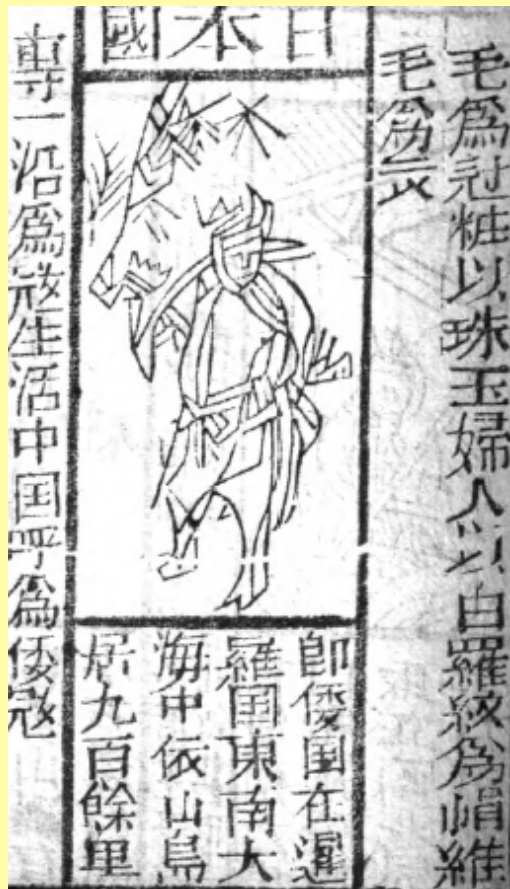 毛爲冠粧以珠玉婦人以白羅紋爲帽維
毛爲衣
日本國
即倭国在暹
羅国東南大
海中依山島
居九百餘里
專一沿爲寇生活中国呼爲倭寇